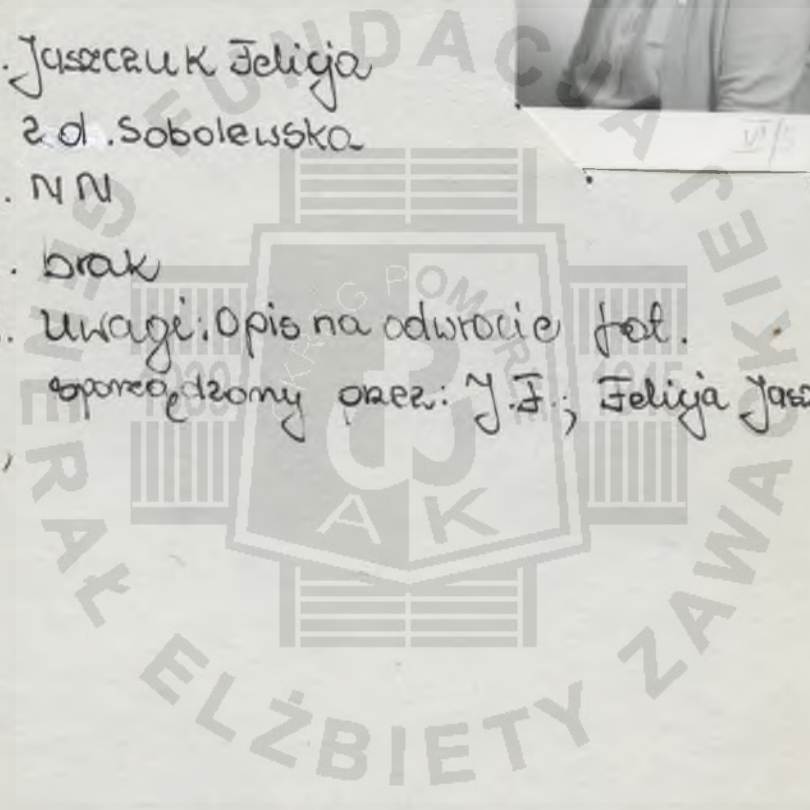 . Jaszczuk Felicja
z d. Sobolewska
. NN
. brak
. Uwagi: Opis na odwrocie fot.
sporządzony przez: J.F.; Felicja Jasz
VI/5
FUNDACJA GENERAŁ ELŻBIETY ZAWACKIEJ
OKRĘG POMORZE
1939 1945
AK